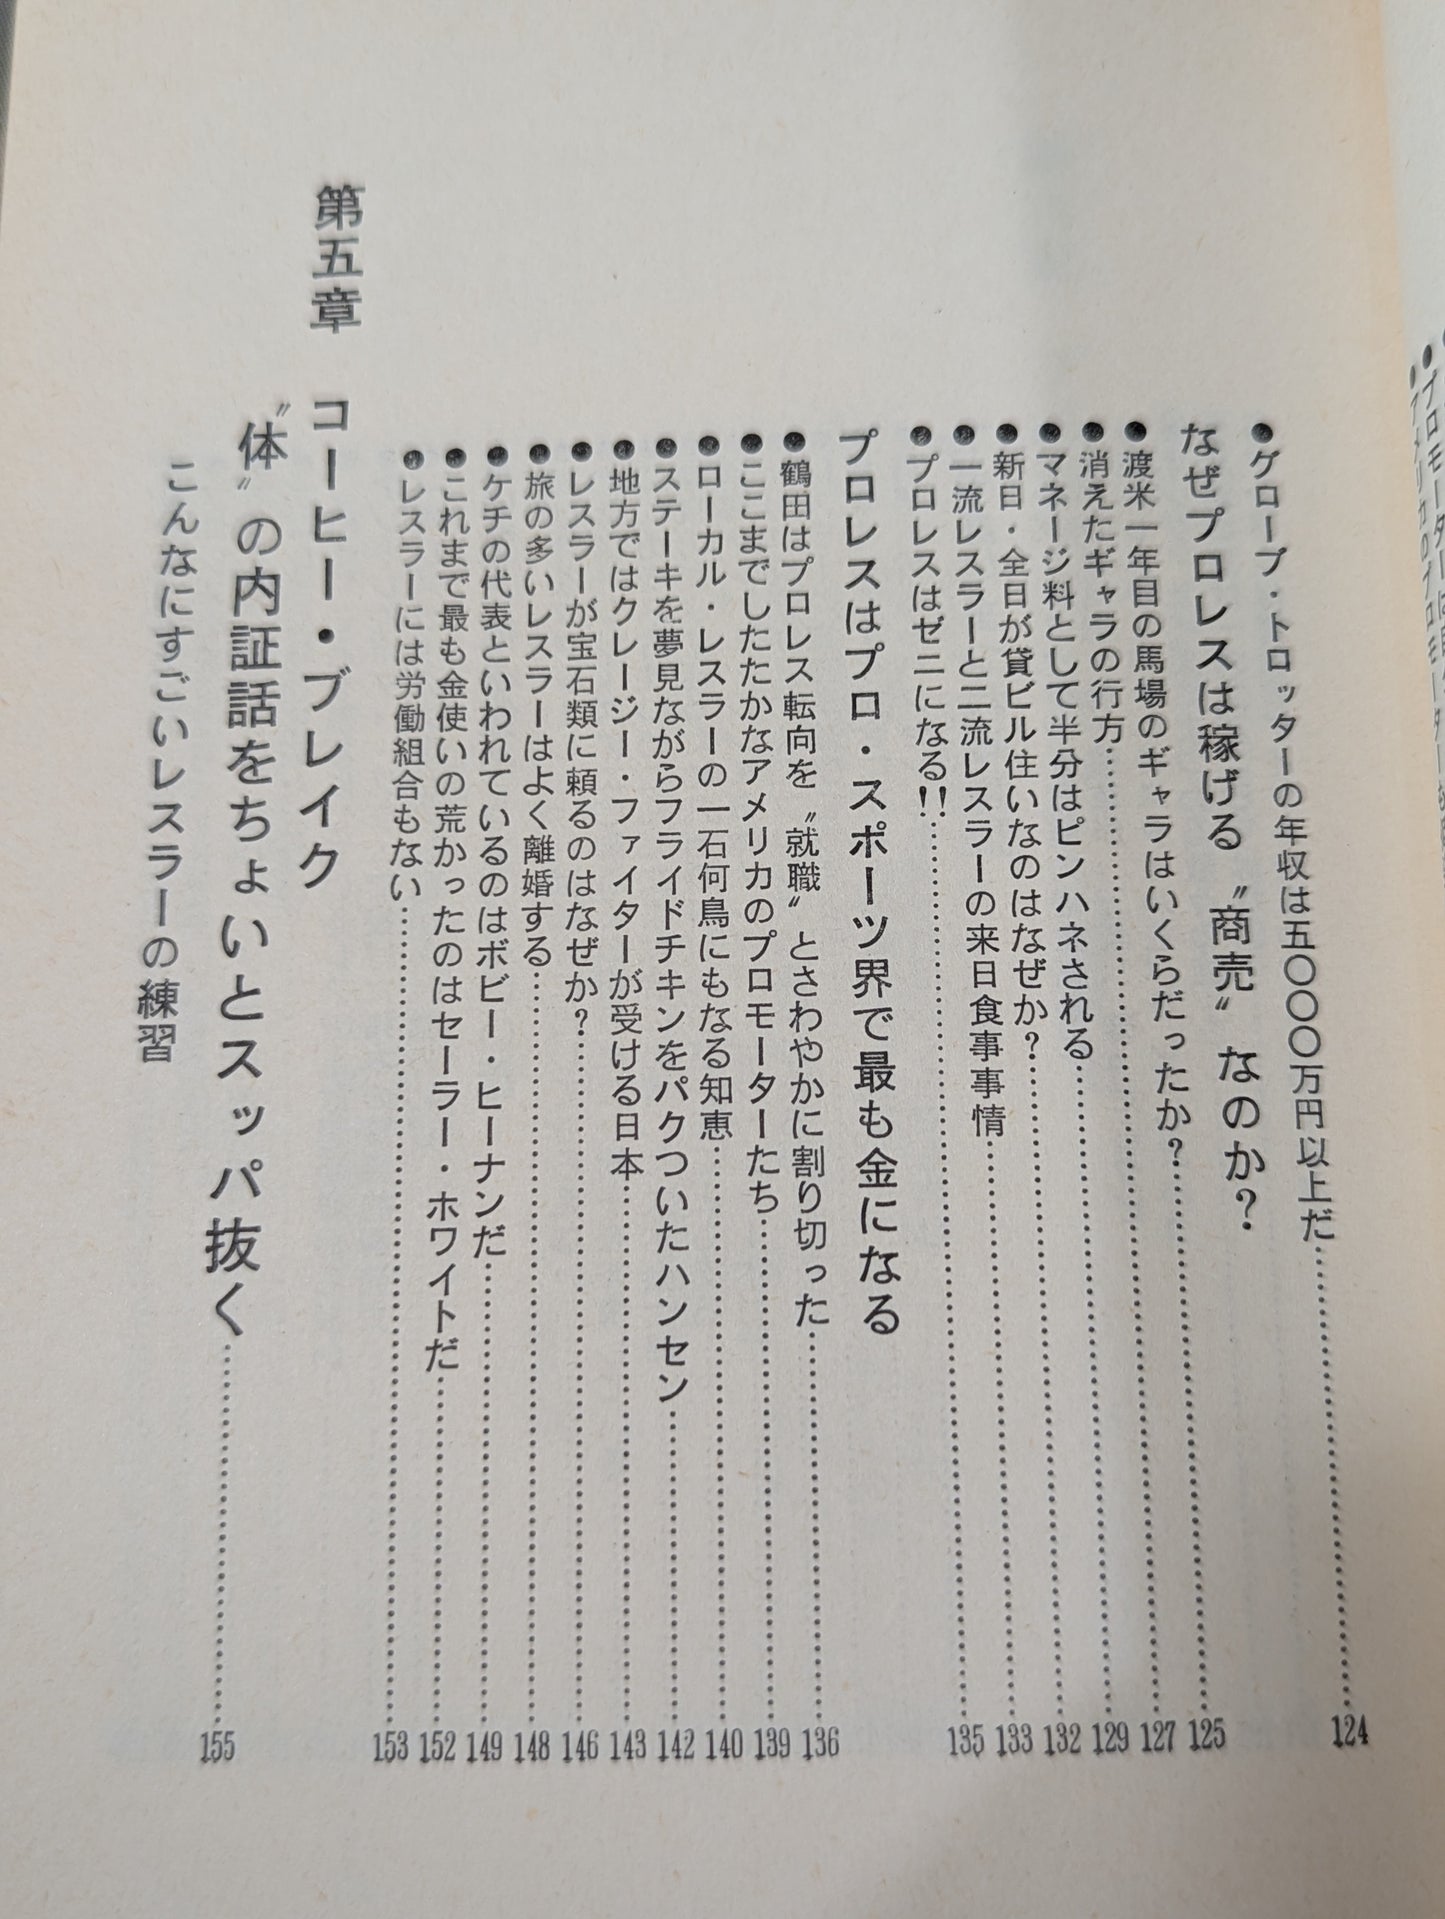 ●グローブ・トロッターの年収は五〇〇〇万円以上だ……124
なぜプロレスは稼げる〝商売〟なのか?
●渡米一年目の馬場のギャラはいくらだったか?……125
●消えたギャラの行方……127
●マネージ料として半分はピンハネされる……129
●新日・全日が貸ビル住いなのはなぜか?……132
●一流レスラーと二流レスラーの来日食事事情……133
●プロレスはゼニになる!!……135
プロレスはプロ・スポーツ界で最も金になる
●鶴田はプロレス転向を〝就職〟とさわやかに割り切った……136
●ここまでしたたかなアメリカのプロモーターたち……139
●ローカル・レスラーの一石何鳥にもなる知恵……140
●ステーキを夢見ながらフライドチキンをパクついたハンセン……142
●地方ではクレージー・ファイターが受ける日本……143
●レスラーが宝石類に頼るのはなぜか?……146
●旅の多いレスラーはよく離婚する……148
●ケチの代表といわれているのはボビー・ヒーナンだ……149
●これまで最も金使いの荒かったのはセーラー・ホワイトだ……152
●レスラーには労働組合もない……153
第五章 コーヒー・ブレイク
〝体〟の内証話をちょいとスッパ抜く……155
こんなにすごいレスラーの練習